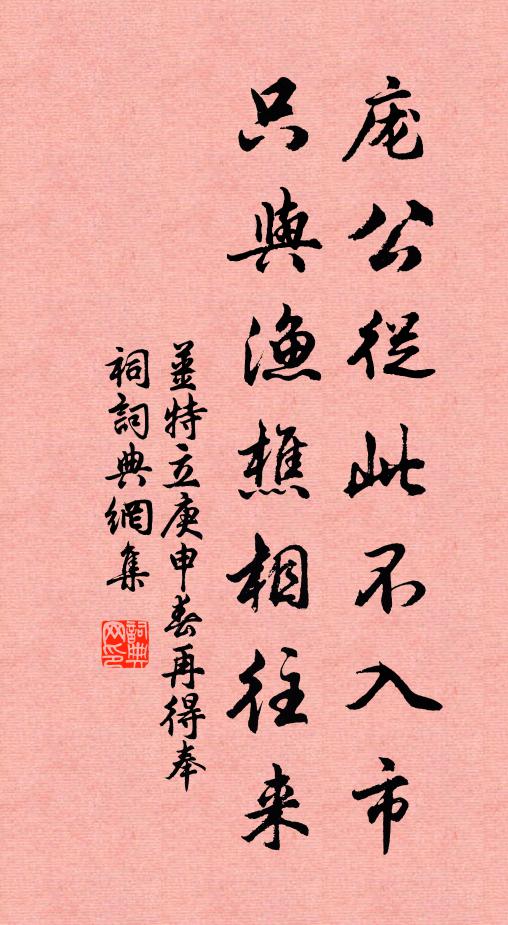 庞公從此不入市
只與漁樵相往来
姜特立庚申春再得奉
祠詞典網集
詞典網印